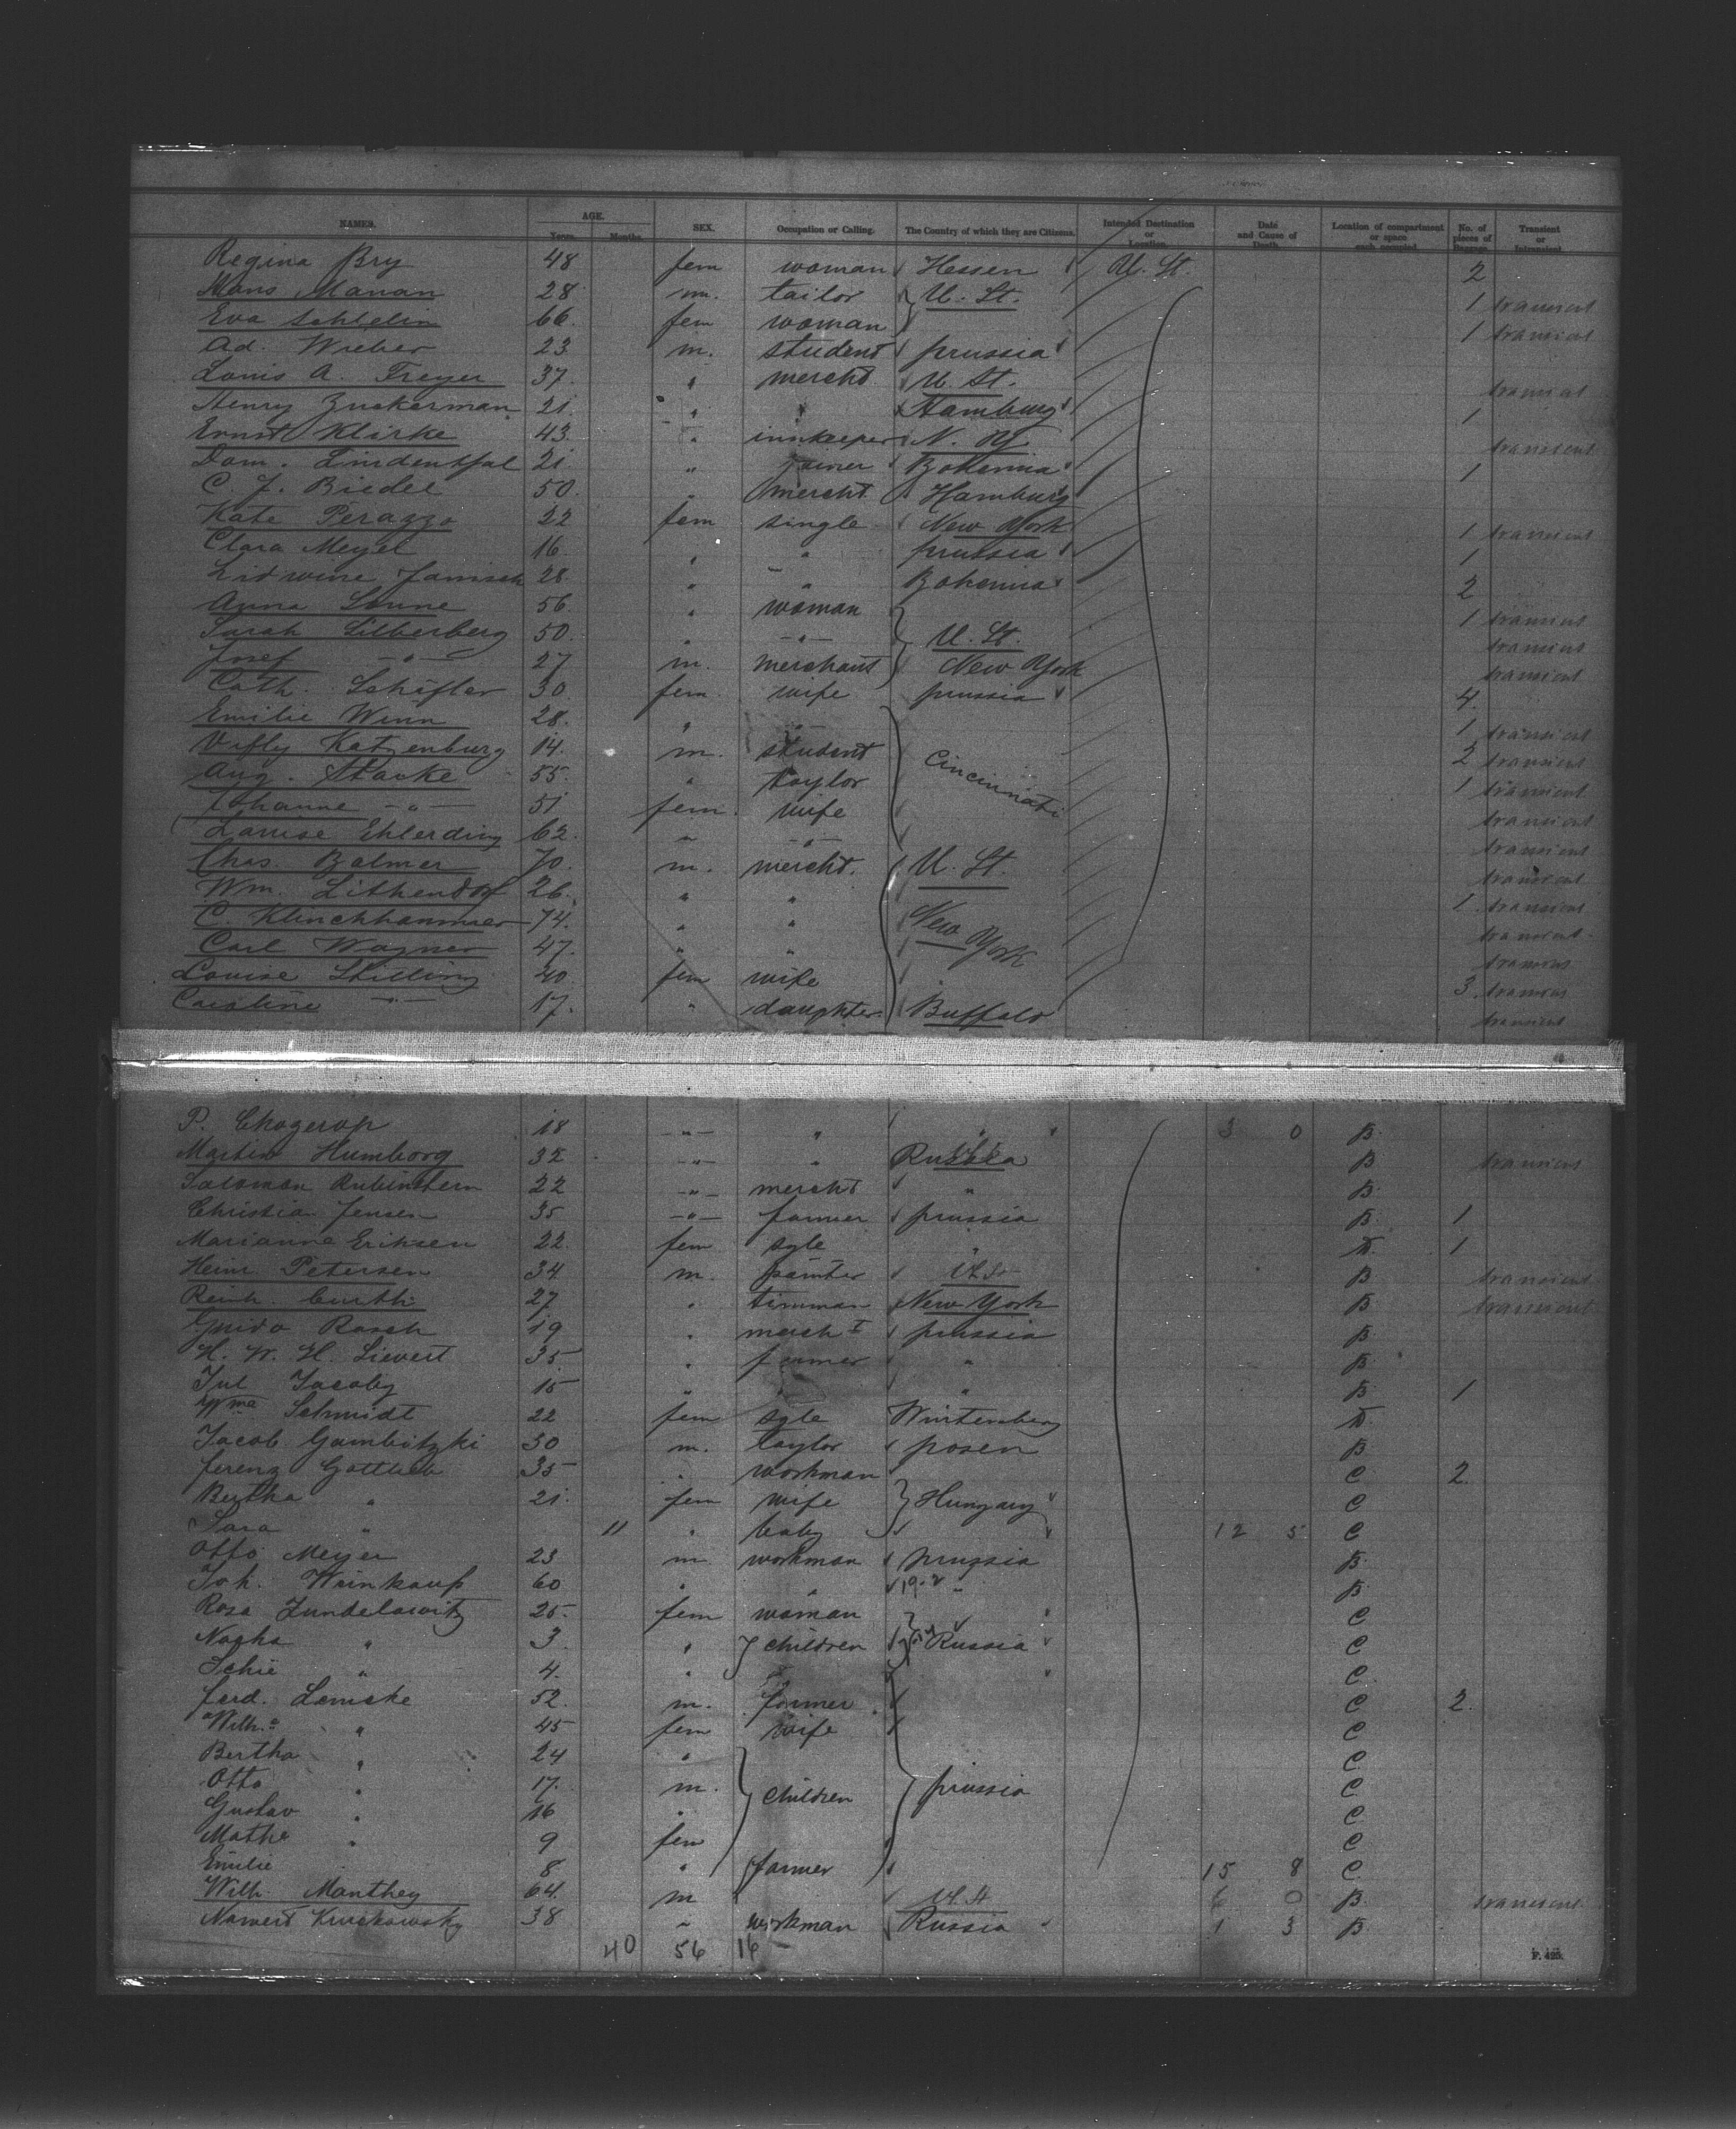 NAMES. AGE. Years. Months. SEX. Occupation or Calling. The Country of which they are Citizens. Intended Destination or Location. Date and Cause of Death. Location of compartment or space each occupied. No. of pieces of Baggage. Transient or Intransient
Regina Bry 48 fem woman Hessen U. St. 2
Hans Manan 28 m. tailor U. St. 1 transient
Eva 66 fem woman 1 transient
Ad. Wieber 23 m. student prussia
Louis A. Freyer 37. " mercht U. St. transient
Henry Zuckerman 21. " " Hamburg 1
Ernst Klirke 43 " innkeeper N. Y. transient
Dom. Lindenthal 21 " joiner Bohemia 1
C. J. Biedel 50. " mercht. Hamburg
Kate Perazzo 22 fem single New York 1 transient
Clara Meyel 16. " " prussia 1
Lidwine Janisch 28. " " Bohemia 2
Anna Lonne 56. " woman 1 transient
Sarah Silberberg 50. " -"- U. St. transient
Josef -"- 27 m. merchant New York transient
Cath. Schäfler 30. fem. wife prussia 4.
Emilie Winn 28. " -"- 1 transient
Katzenburg 14. m. student Cincinnati 2 transient
Aug. Starke 55. " taylor 1 transient
Johanne -"- 51 fem. wife transient
Louise Ehlerding 62. " -"- transient
Chas. Balmer 70. m. mercht. U. St. transient
Wm. Lithendorf 26. " " 1. transient
C. Klinckhammer 74. " " New York transient
Carl Wagner 47. " " transient
Louise Stilling 40. fem wife 3. transient
Caroline -"- 17. " daughter Buffalo transient
P. 18 -"- " " 3 0 B.
Martin Humborg 32 -"- " Russia B transient
Salomon Rubinstein 22 -"- mercht " B.
Christian Jensen 35 -"- farmer prussia B. 1
Marianne Eriksen 22. fem sgle " D. 1
Heinr. Petersen 34 m. painter U. St B transient
Reinh. Curth 27 " tinman New York B. transient
Guido Rasch 19 " mercht prussia B.
H. W. H. Lievert 35. " farmer " B.
Jul Jacoby 15 " " " B. 1
Wme Schmidt 22 fem sgle Würtemberg D.
Jacob Gambitzki 30 m. taylor posen B
ferenz Gottlieb 35 " workman C 2.
Bertha " 21. fem wife Hungary C
Sara " 11 " baby 12 5 C
Otto Meyer 23 m. workman prussia B.
Joh. Weinkauf 60 " " " B.
Rosa Zundelowitz 25. fem woman C
" 3. " children Russia C
Schie " 4. " C.
ferd. Lemcke 52. m. farmer C 2.
Wilh.e " 45 fem wife C
Bertha " 24 " C.
Otto " 17. m. children prussia C
Gustav " 16 " C
Mathe " 9 fem C
Emilie " 8 " 15 8 C.
Wilh. Manthey 64. m farmer U. St 6 0 B. transient
38 " workman Russia 1 3 B
40 56 16
F. 425.